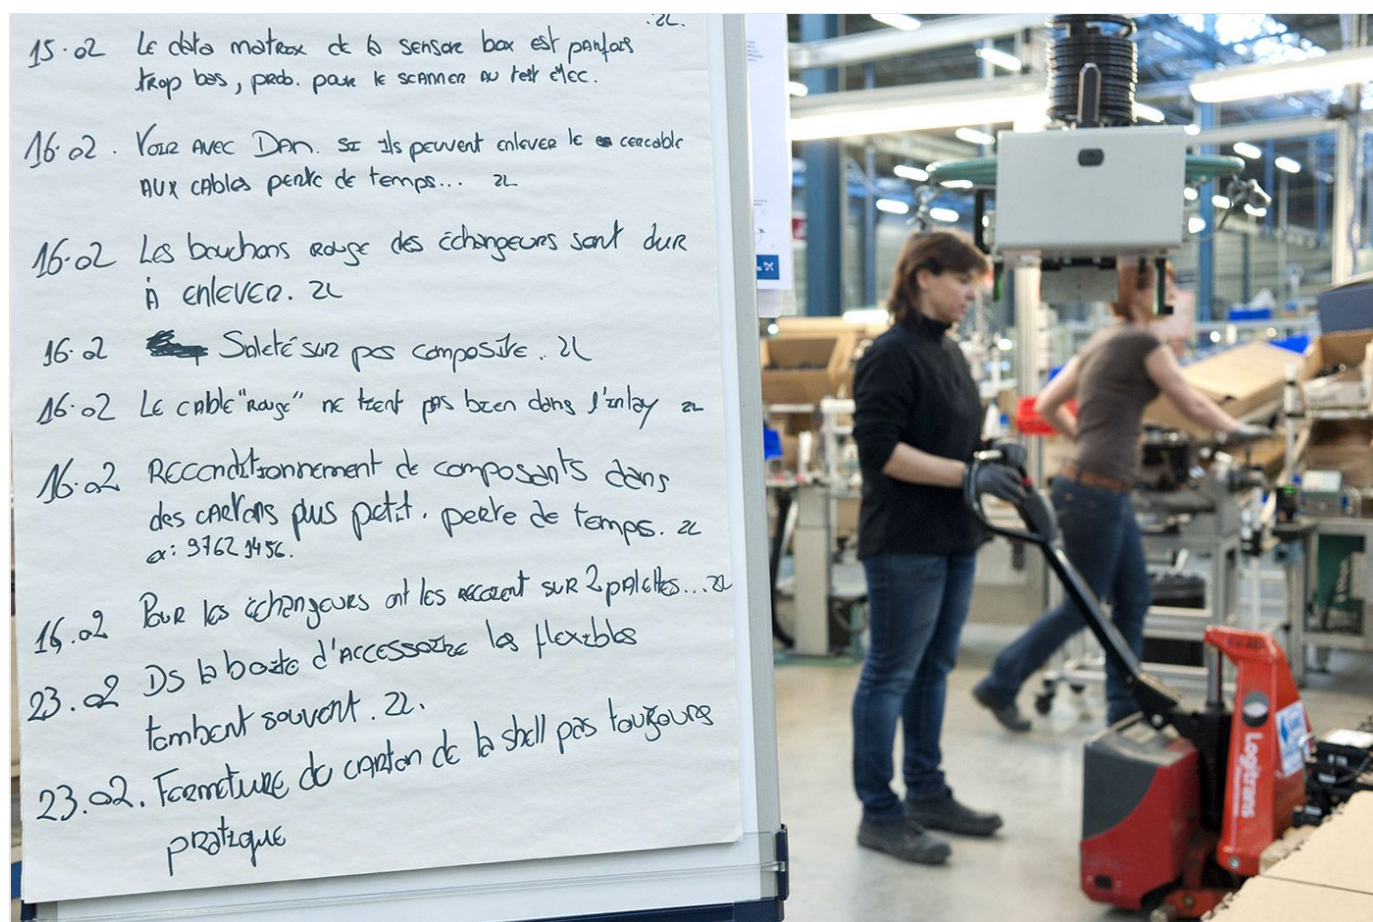 . 2L.
15.02 Le data matrox de la sensore box est parfois
trop bas, prob. pour le scanner au test élec.
16.02. Voir avec Dan. si ils peuvent enlever le cercable
aux cables perte de temps... 2L
16.02 Les bouchons rouge des échangeurs sont dur
à enlever. 2L
16.02 Saleté sur pcs composite. 2L
16.02 Le cable "rouge" ne tient pas bien dans l'inlay 2L
16.02 Reconditionnement de composants dans
des cartons plus petit. perte de temps. 2L
ex: 97621456.
16.02 Pour les échangeurs ont les recoient sur 2 palettes... 2L
23.02 Ds la boite d'accessoire les flexibles
tombent souvent. 2L.
23.02. Fermeture du carton de la shell pas toujours
pratique
Logitrans